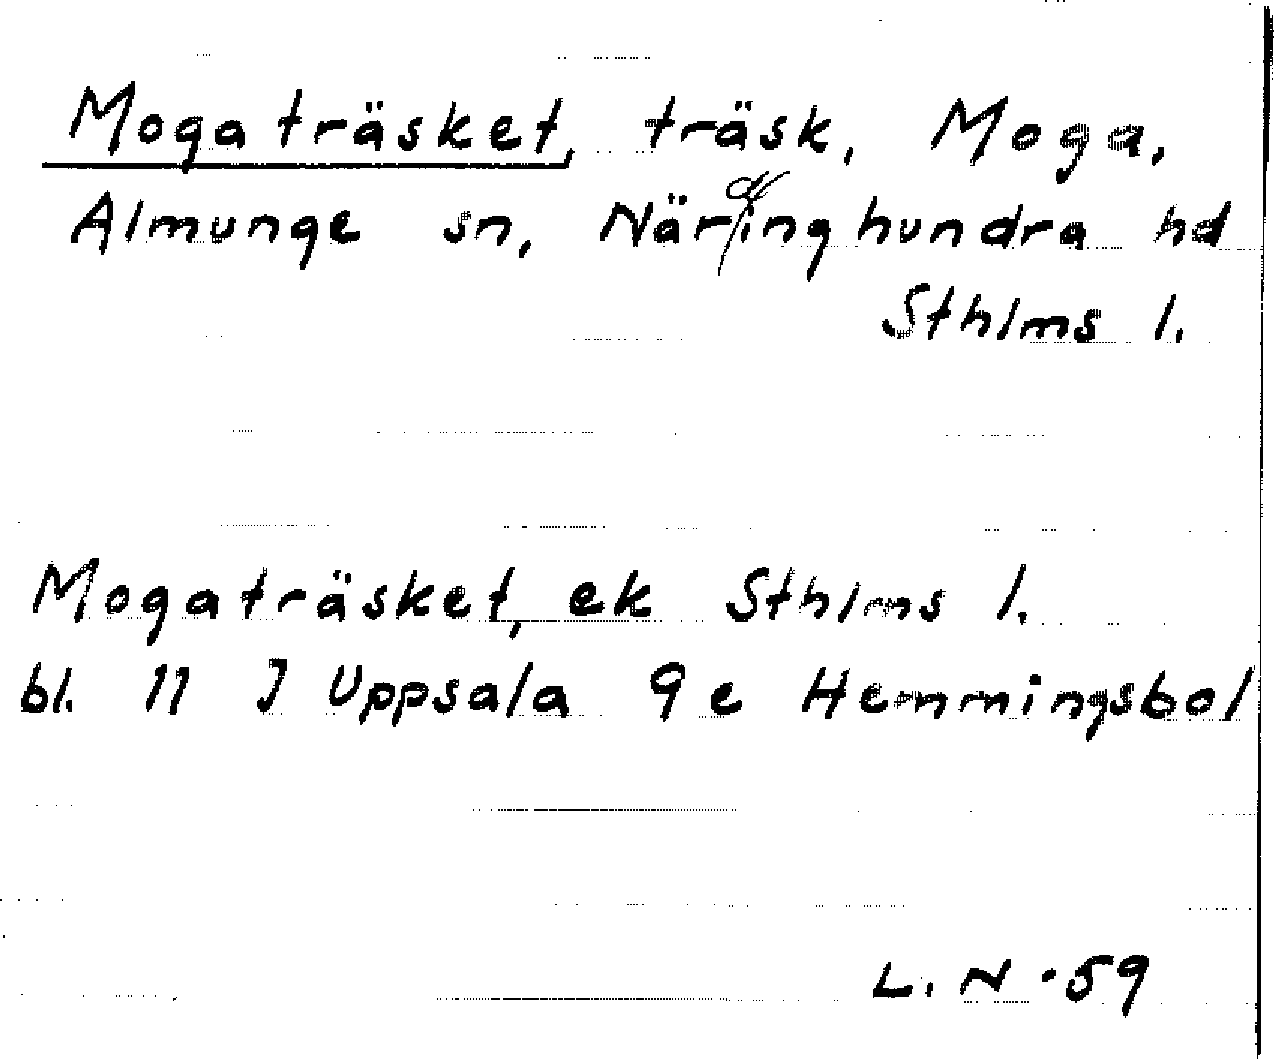 Mogaträsket, träsk, Moga,
Almunge sn, Närdinghundra hd
Sthlms l.
Mogaträsket, ek Sthlms l.
bl. 11 I Uppsala 9e Hemmingsbol
L. N -59